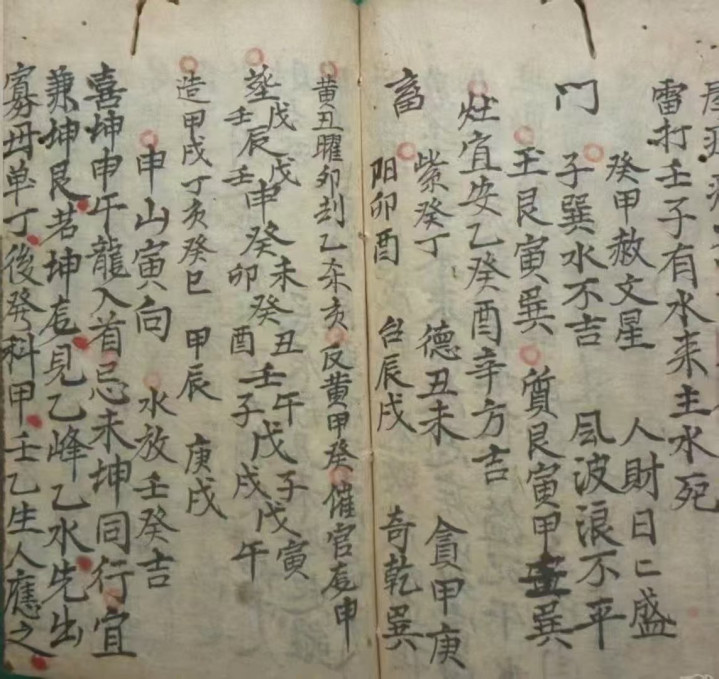 雷打壬子有水来主水死
癸甲赦文星 人財日二盛
门 子巽水不吉 風波浪不平
玉艮寅巽 質艮寅甲 巽
灶宜安乙癸酉辛方吉
紫癸丁 德丑未 貪甲庚
畜 阳卯酉 台辰戌 奇乾巽
黄丑曜卯刦乙 亥 反黄甲癸 催官 申
戊 戊 癸未 丑 午 子 寅
壬辰 壬申 癸卯 癸酉 壬子 戊戌 戊午
造甲戌丁亥癸巳 甲辰 庚戌
申山寅向 水放壬癸吉
喜坤申午龍入首忌未坤同行宜
兼坤艮若坤 見乙峰乙水先出
寡母单丁後發科甲壬乙生人應之